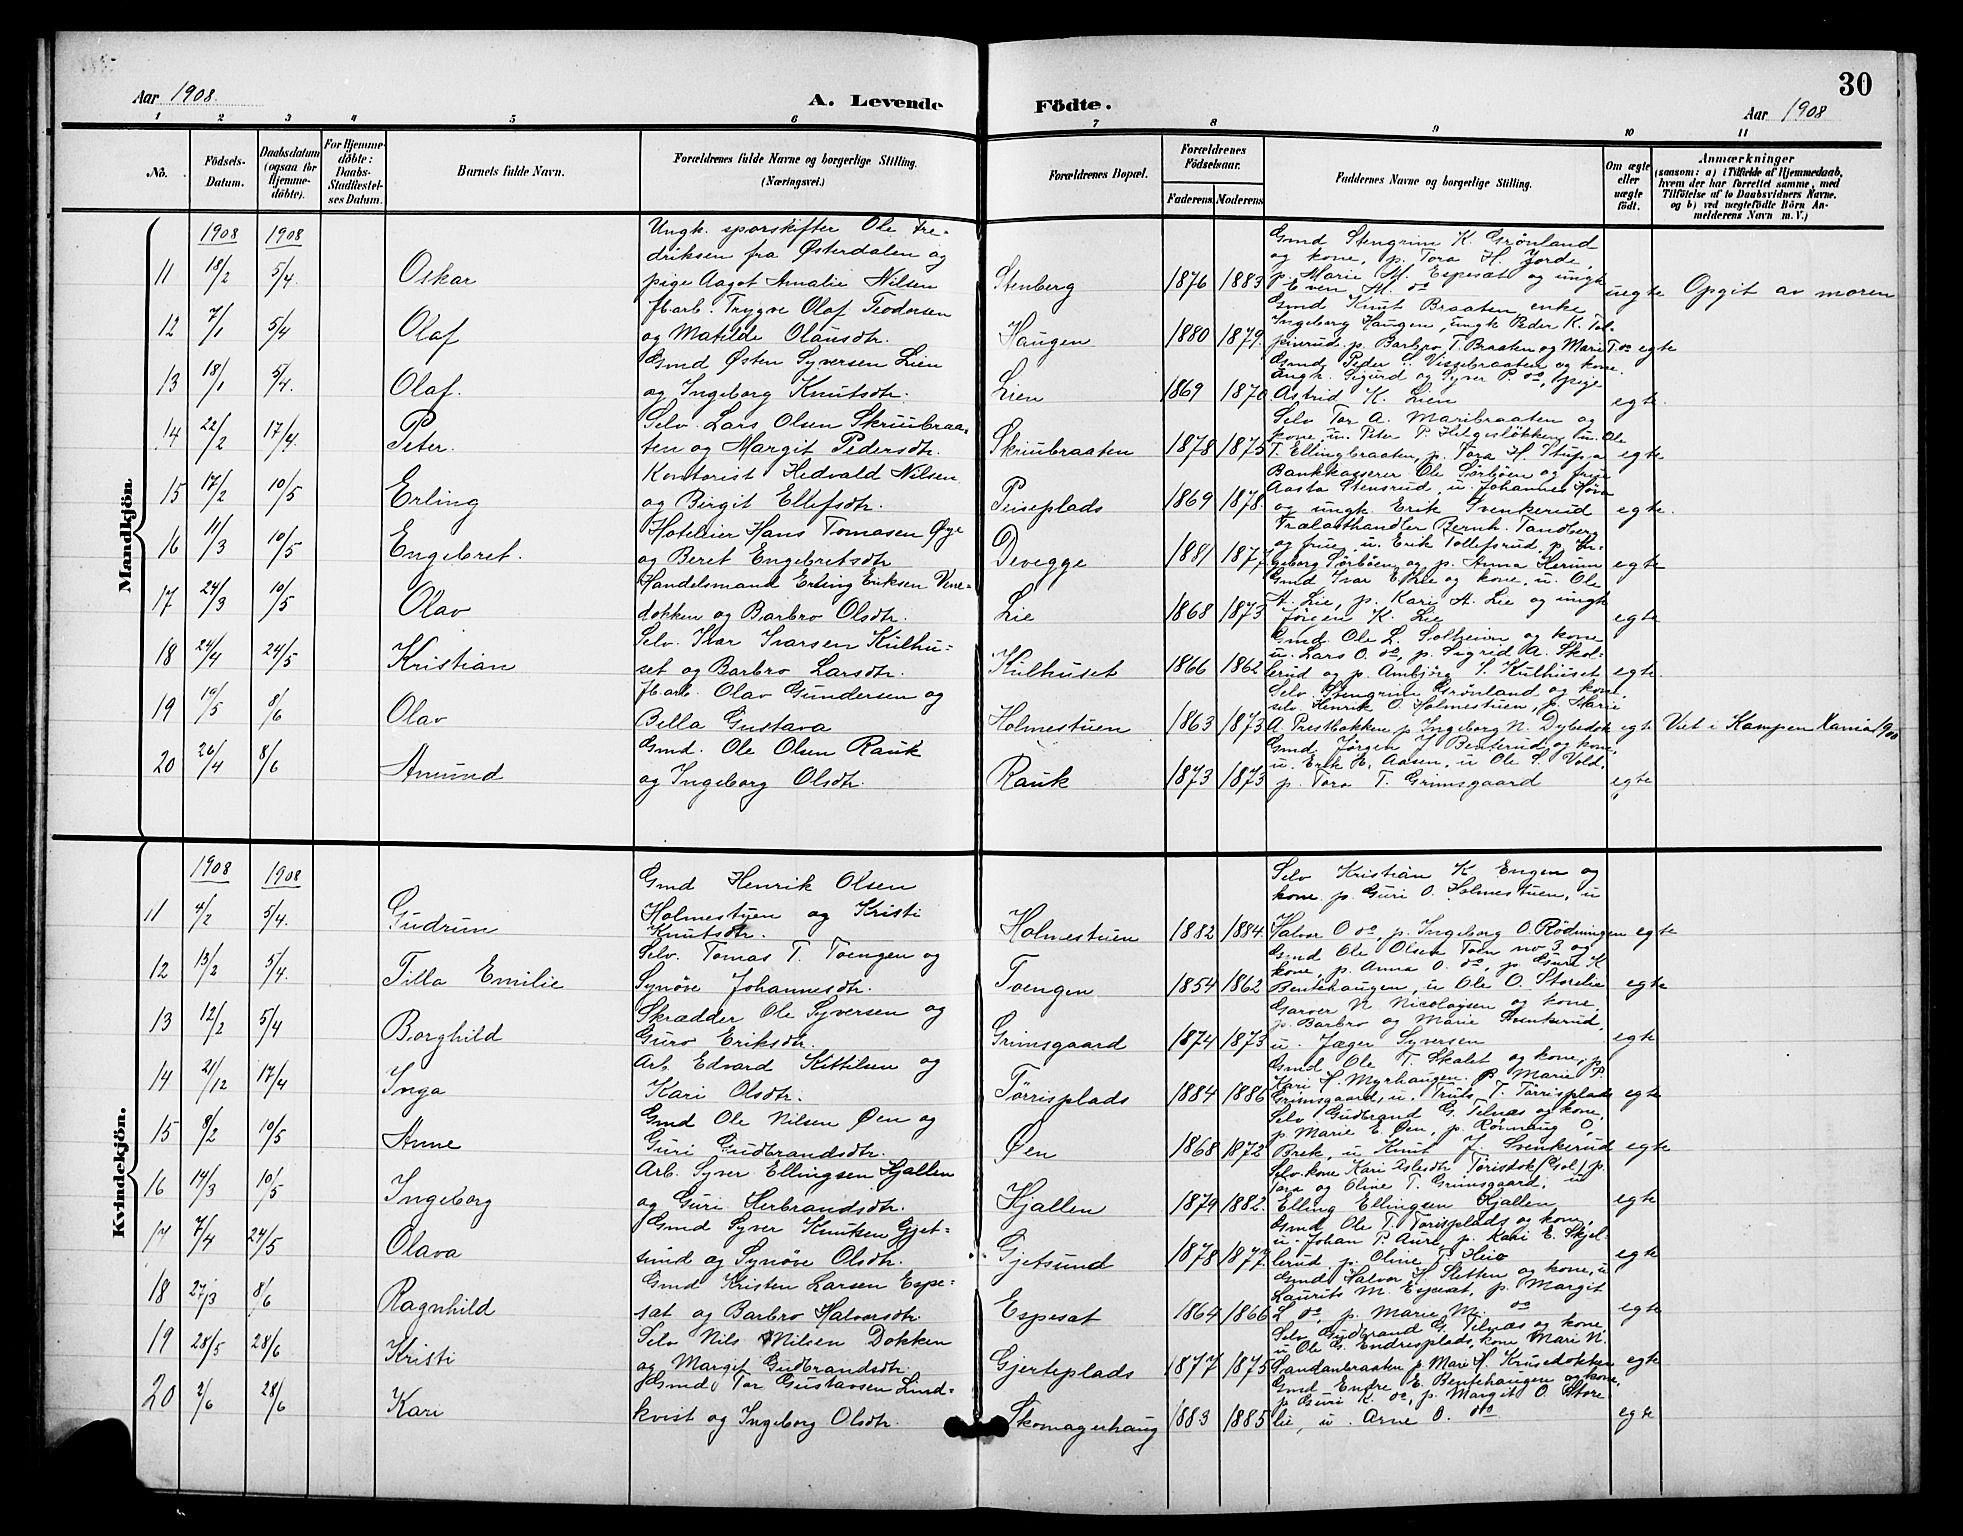 30
Aar 1908.
A. Levende Födte.
Aar 1908
1 2 3 4 5 6 7 8 9 10 11
No.
Födsels-Datum.
Daabsdatum (ogsaa for Hjemme-döbte).
For Hjemme-döbte: Daabs-Stadfæstel-ses Datum.
Barnets fulde Navn.
Forældrenes fulde Navne og borgerlige Stilling.
(Næringsvei.)
Forældrenes Bopæl.
Forældrenes Födselsaar.
Faderens Moderens
Faddernes Navne og borgerlige Stilling.
Om ægte eller uægte födt.
Anmærkninger
(saasom: a) i Tilfælde af Hjemmedaab, hvem der har forrettet samme, med Tilföielse af to Daabsvidners Navne. og b) ved uægtefödte Börn An-melderens Navn m. V.)
Mandkjön
1908 1908
11 18/2 5/4. Oskar
Ungk. sporskifter Ole Fre-
driksen fra Østerdalen og
pige Aagot Amalie Nilsen
Stenberg 1876 1883
Gmd Stengrim K. Grønland
og kone, p. Tora H. Jorde,
p. Marie M. Espesæt og ungk
Even M. do
uegte Opgit av moren
12 7/1 5/4 Olaf
Harb. Trygve Olaf Teodorsen
og Matilde Olausdtr.
Haugen 1880 1879.
Gmd Knut Braaten, enke
Ingeborg Haugen, ungk Peder K. Tol-
p. Barbro T. Braaten og Mari T. do egte
13 18/1 5/4. Olaf.
Gmd Østen Syversen Lien
og Ingeborg Knutsdtr.
Lien 1869 1870
Gmd Peder S. Vissebraaten og kone.
Ungk. Sigurd og Syver P. do, pige
Astrid K. Lien egte.
14 22/2 17/4. Peter.
Selv. Lars Olsen Skriubraa-
ten og Margit Pedersdtr.
Skriubraaten 1878 1875
Selv Tor A. Maribraaten og
kone, u. Peter P. Helgesløkken, u. Ole
T. Ellingbraaten, p. Tora H. egte
15 17/2 10/5 Erling
Kontorist Hedvald Nilsen
og Birgit Ellefsdtr.
Peiseplads 1869 1878.
Bankkasserer Ole Sørbøen og frue
Aasta Stensrud, u. Johannes
og ungk. Erik Svenkerud egte.
16 11/3 10/5 Engebret.
Hoteleier Hans Tomasen Øye
og Beret Engebretsdtr.
Devegge 1881 1877
Trælasthandler Bernh. Tandberg
og frue, u. Erik Tollefsrud, p. In-
geborg Sørbøen og p. Anna egte
17 24/3 10/5 Olav
Handelsmand Erling Eriksen Vene-
dokken og Barbro Olsdtr.
Lie 1868 1873
Gmd Ivar E. Lie og kone, u. Ole
A. Lie, p. Kari A. Lie og ungk
Jørgen K. Lie egte
18 24/4 24/5 Kristian
Selv. Ivar Ivarsen Kulhu-
set og Barbro Larsdtr.
Kulhuset 1866 1862
Gmd. Ole L. og kone
u. Lars O. do, p. Sigrid A. Skol-
lerud og p. Ambjørg I. Kulhuset egte.
19 19/5 8/6 Olav
Harb. Olav Gundersen og
Bella Gustava
Holmestuen 1863 1873
Selv. Stengrim Grønland og kone,
selv Henrik O. Holmestuen, p. Marie
A. Prestbakken p. Ingeborg N. egte
Viet i Kampen Xania 1900
20 26/4 8/6 Amund
Gmd. Ole Olsen Rauk
og Ingeborg Olsdtr.
Rauk 1873 1873
Gmd. Jørgen J Benterud og kone,
u. Erik H. Aasen, u Ole S. Vold,
p. Tora T. Grimsgaard egte
Kvindekjön.
1908 1908
11 4/2 5/4. Gudrun
Gmd Henrik Olsen
Holmestuen og Kristi
Knutsdtr.
Holmestuen 1882 1884.
Selv Kristian K Engen og
kone p. Guri O. Holmestuen, u
Halvor O do p. Ingeborg O. Rødningen egte
12 13/2 5/4. Tilla Emilie
Selv. Tomas T. Toengen og
Synøve Johannesdtr.
Toengen 1854 1862
Gmd Ole Olsen Toen no 3 og
kone, p. Anna O. do, p. Guri K
Bentehaugen, u Ole O. Storelie egte
13 12/2 5/4 Borghild
Skrædder Ole Syversen og
Guro Eriksdtr.
Grimsgaard 1874 1873
Garver N Nicolaysen og kone,
p. Barbro og Marie Svenkerud,
u. Jæger Syversen egte
14 21/12 17/4 Inga
Arb. Edvard Kittilsen og
Kari Olsdtr.
Tørrisplads 1884 1886
Gmd Ole T. Skalet og kone, p
Kari H. Myrhaugen. p Marie P.
Grimsgaard, u. Truls T. Tørrisplads egte
15 8/2 10/5 Anne
Gmd Ole Nilsen Øen og
Guri Gudbrandsdtr.
Øen 1868 1872
Selv. Gudbrand G. Tilnæs og kone,
p. Marie E. Øen, p. Rønnaug O.
Brek, u. Knut J. Svenkerud egte
16 14/3 10/5 Ingeborg
Arb. Syver Ellingsen Hjallen
og Guri Herbrandsdtr.
Hjallen 1879 1882.
Selv. kone Kari Aslesdtr Torisdok (Gol) p.
Tora og Oline T. Grimsgaard, u
Elling Ellingsen Hjallen egte
17 7/4 24/5 Olava
Gmd Syver Knutsen Gjet-
sund og Synøve Olsdtr.
Gjetsund 1878 1877
Gmd. Ole T. Torisplads og kone,
u. Johan P. Aure, p. Kari E. Skjel-
lerud, p. Oline T. egte
18 27/3 8/6 Ragnhild
Gmd Kristen Larsen Espe-
sæt og Barbro Halvorsdtr.
Espesæt 1864 1866
Gmd Halvor H. Sletten og kone, u
Laurits M. Espesæt, p. Margit
L do, p. Marie M. do egte
19 28/5 28/6 Kristi
Selv Nils Nilsen Dokken
og Margit Gudbrandsdtr.
Gjerteplads 1877 1875
Selv Gudbrand G. Tilnæs og kone
u Ole G. Endresplads, kone Mari N.
Sandanbraaten p. Mari H. Krusedokken egte
20 2/6 28/6 Kari
Gmd. Tor Gustavsen Lind-
kvist og Ingeborg Olsdtr.
Skomagerhaug 1883 1885
Gmd Endre E. Bentehaugen og kone,
p Guri K. do, p. Margit O Store
lie, u. Arne O. do egte